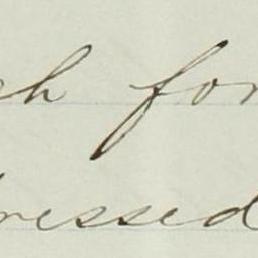 ch for
ressed